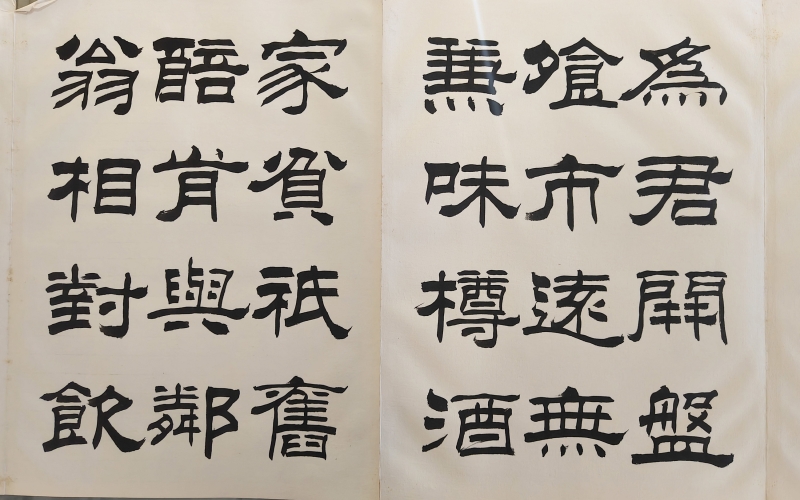 為君開盤
飧市遠無
兼味樽酒
家貧祇舊
醅肯與鄰
翁相對飲